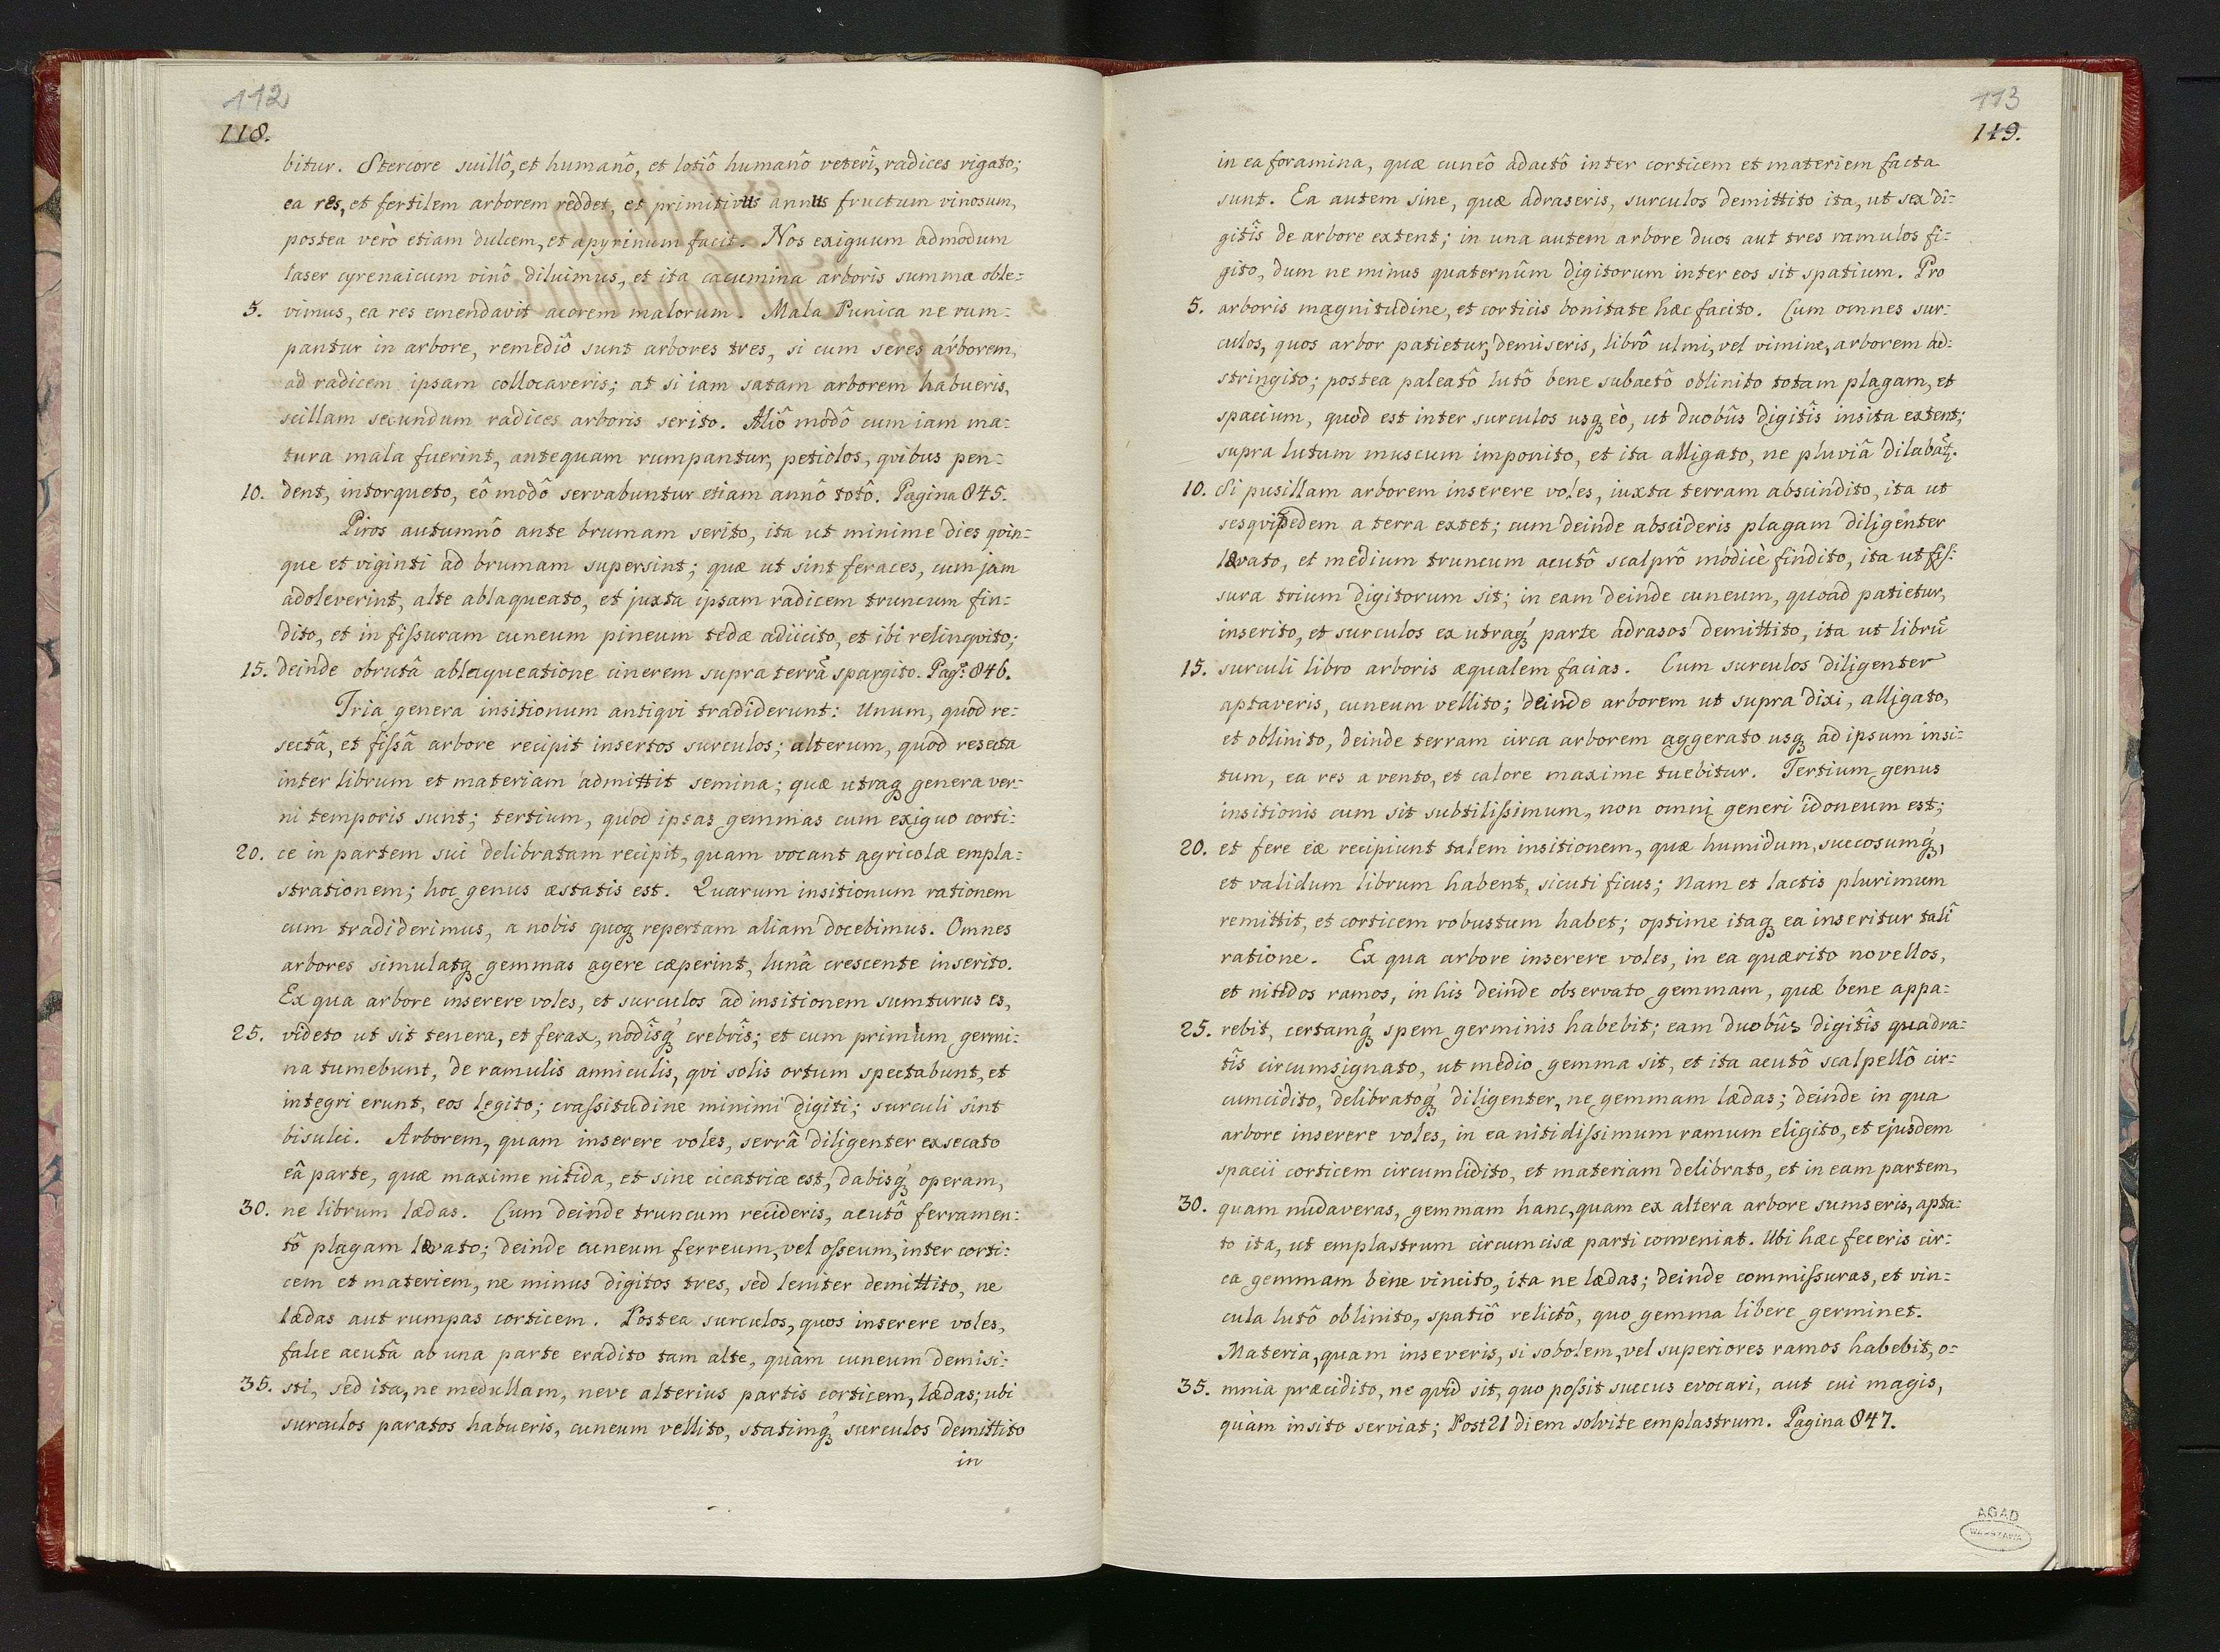 112
118.
bitur. Stercore suillô, et humanô, et lotiô humanô veterî, radices rigato;
ea res, et fertilem arborem reddet, et primitivus annus fructum vinosum,
postea verò etiam dulcem, et apyrinum facit. Nos exiguum admodum
laser cyrenaicum vinô diluimus, et ita cacumina arboris summa oble-
5. vimus, ea res emendavit acorem malorum. Mala Punica ne rum-
pantur in arbore, remediô sunt arbores tres, si cum seres arborem,
ad radicem ipsam collocaveris; at si iam satam arborem habueris,
scillam secundum radices arboris serito. Aliô modô cum iam ma-
tura mala fuerint, antequam rumpantur, petiolos, qvibus pen-
10. dent, intorqueto, eô modô servabuntur etiam annô totô. Pagina 845.
Piros autumnô ante brumam serito, ita ut minime dies qvin-
que et viginti ad brumam supersint; quæ ut sint feraces, cum jam
adoleverint, alte ablaqueato, et juxta ipsam radicem truncum fin-
dito, et in fissuram cuneum pineum tedæ adiicito, et ibi relinqvito;
15. deinde obrutâ ablaqueatione cinerem supra terrã spargito. Pag: 846.
Tria genera insitionum antiqvi tradiderunt: Unum, quod re-
sectâ, et fissâ arbore recipit insertos surculos; alterum, quod resecta
inter librum et materiam admittit semina; quæ utraq; genera ver-
ni temporis sunt; tertium, quod ipsas gemmas cum exiguo corti-
20. ce in partem sui delibratam recipit, quam vocant agricolæ empla-
strationem; hoc genus æstatis est. Quarum insitionum rationem
cum tradiderimus, a nobis quoq; repertam aliam docebimus. Omnes
arbores simulatq; gemmas agere cæperint, lunâ crescente inserito.
Ex qua arbore inserere voles, et surculos ad insitionem sumturus es,
25. videto ut sit tenera, et ferax, nodîsq; crebrîs; et cum primùm germi-
na tumebunt, de ramulis anniculis, qvi solis ortum spectabunt, et
integri erunt, eos legito; crassitudine minimi digiti; surculi sint
bisulci. Arborem, quam inserere voles, serrâ diligenter exsecato
eâ parte, quæ maxime nitida, et sine cicatrice est, dabisq; operam,
30. ne librum lædas. Cum deinde truncum recideris, acutô ferramen-
tô plagam lævato; deinde cuneum ferreum, vel osseum, inter corti-
cem et materiem, ne minus digitos tres, sed leniter demittito, ne
lædas aut rumpas corticem. Postea surculos, quos inserere voles,
falce acutâ ab una parte eradito tam alte, quàm cuneum demisi-
35. sti, sed ita, ne medullam, neve alterius partis corticem, lædas; ubi
surculos paratos habueris, cuneum vellito, statimq; surculos demittito
in
113
119.
in ea foramina, quæ cuneô adactô inter corticem et materiem facta
sunt. Ea autem sine, quæ adraseris, surculos demittito ita, ut sex di-
gitîs de arbore extent; in una autem arbore duos aut tres ramulos fi-
gito, dum ne minus quaternûm digitorum inter eos sit spatium. Pro
5. arboris magnitudine, et corticis bonitate hæc facito. Cum omnes sur-
culos, quos arbor patietur, demiseris, librô ulmi, vel vimine, arborem ad-
stringito; postea paleatô lutô bene subactô oblinito totam plagam, et
spacium, quod est inter surculos usq; eò, ut duobûs digitîs insita extent;
supra lutum muscum imponito, et ita alligato, ne pluviâ dilabat.
10. Si pusillam arborem inserere voles, iuxta terram abscindito, ita ut
sesqvipedem a terra extet; cum deinde abscideris plagam diligenter
lævato, et medium truncum acutô scalprô modicè findito, ita ut fis-
sura trium digitorum sit; in eam deinde cuneum, quoad patietur,
inserito, et surculos ex utraq; parte adrasos demittito, ita ut librũ
15. surculi libro arboris æqualem facias. Cum surculos diligenter
aptaveris, cuneum vellito; deinde arborem ut supra dixi, alligato,
et oblinito, deinde terram circa arborem aggerato usq; ad ipsum insi-
tum, ea res a vento, et calore maxime tuebitur. Tertium genus
insitionis cum sit subtilissimum, non omni generi idoneum est;
20. et fere eæ recipiunt talem insitionem, quæ humidum, succosumq;,
et validum librum habent, sicuti ficus; Nam et lactis plurimum
remittit, et corticem robustum habet; optime itaq; ea inseritur talî
ratione. Ex qua arbore inserere voles, in ea quærito novellos,
et nitidos ramos, in his deinde observato gemmam, quæ bene appa-
25. rebit, certamq; spem germinis habebit; eam duobûs digitîs quadra-
tîs circumsignato, ut medio gemma sit, et ita acutô scalpellô cir-
cumcidito, delibratoq; diligenter, ne gemmam lædas; deinde in qua
arbore inserere voles, in ea nitidissimum ramum eligito, et ejusdem
spacii corticem circumcidito, et materiam delibrato, et in eam partem,
30. quam nudaveras, gemmam hanc, quam ex altera arbore sumseris, apta-
to ita, ut emplastrum circumcisæ parti conveniat. Ubi hæc feceris cir-
ca gemmam bene vincito, ita ne lædas; deinde commissuras, et vin-
cula lutô oblinito, spatiô relictô, quo gemma libere germinet.
Materia, quam inseveris, si sobolem, vel superiores ramos habebit, o-
35. mnia præcidito, ne qvid sit, quo possit succus evocari, aut cui magis,
quàm insito serviat; Post 21 diem solvite emplastrum. Pagina 847.
AGAD
WARSZAWA